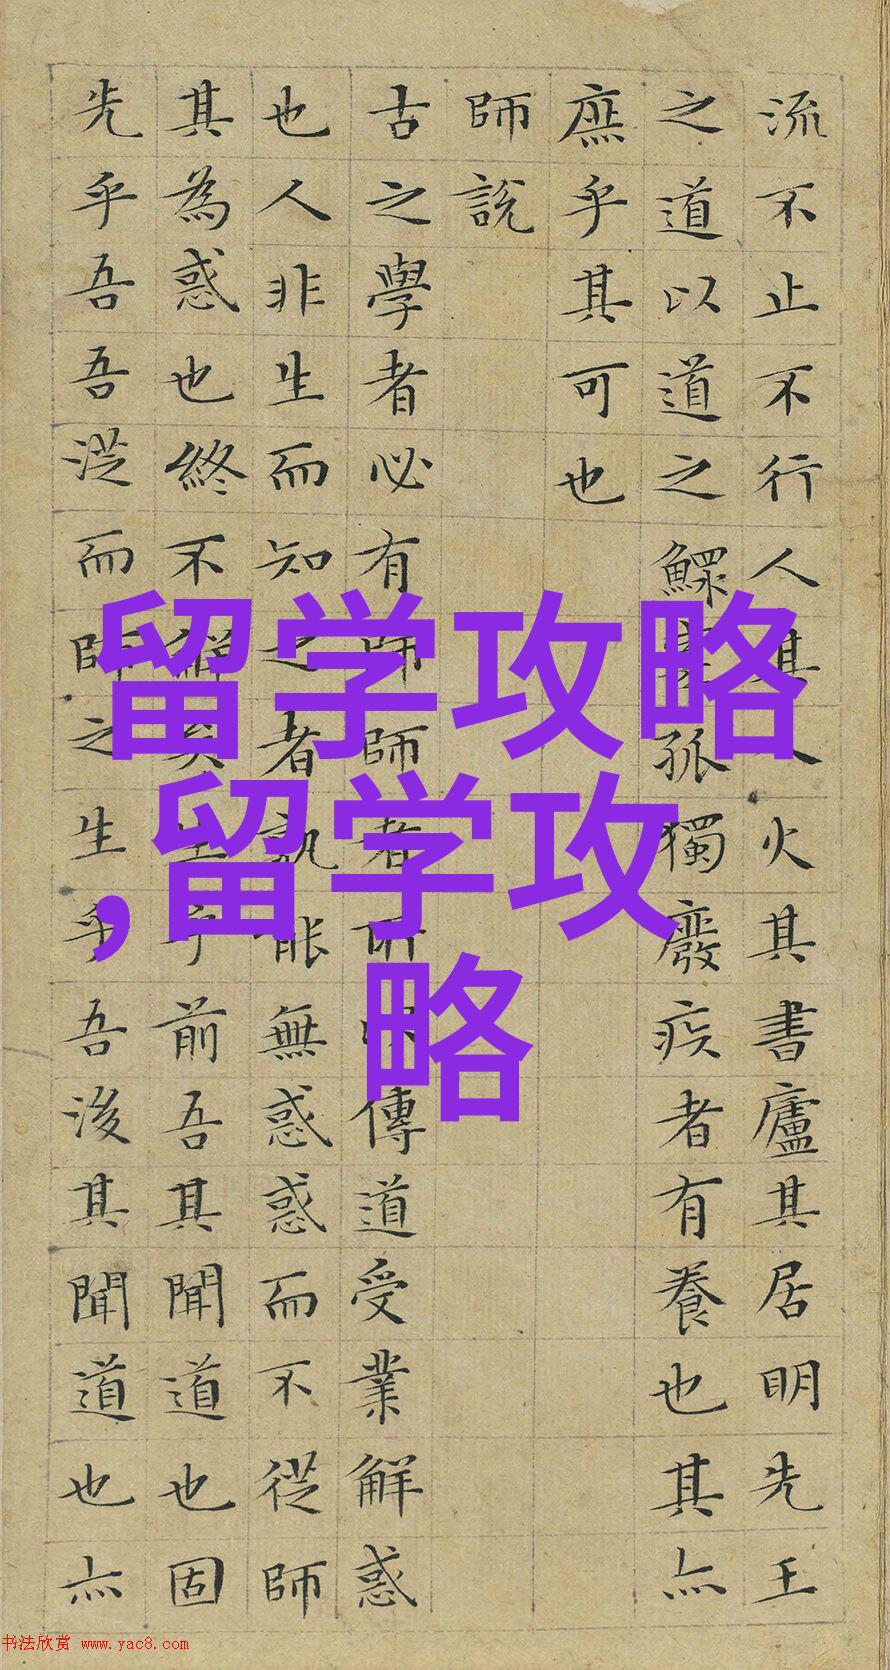 流不止不行人其人火其書廬其居明先王
之道以道之鰥寡孤獨廢疾者有養也其亦
庶乎其可也
師說
古之學者必有師師者所以傳道受業解惑
也人非生而知之者孰能無惑惑而不從師
其為惑也終不解矣生乎前吾其聞道也固
先乎吾吾從而師之生乎吾後其聞道也亦
留学攻略
,留学攻
略
书法欣赏 www.yac8.com